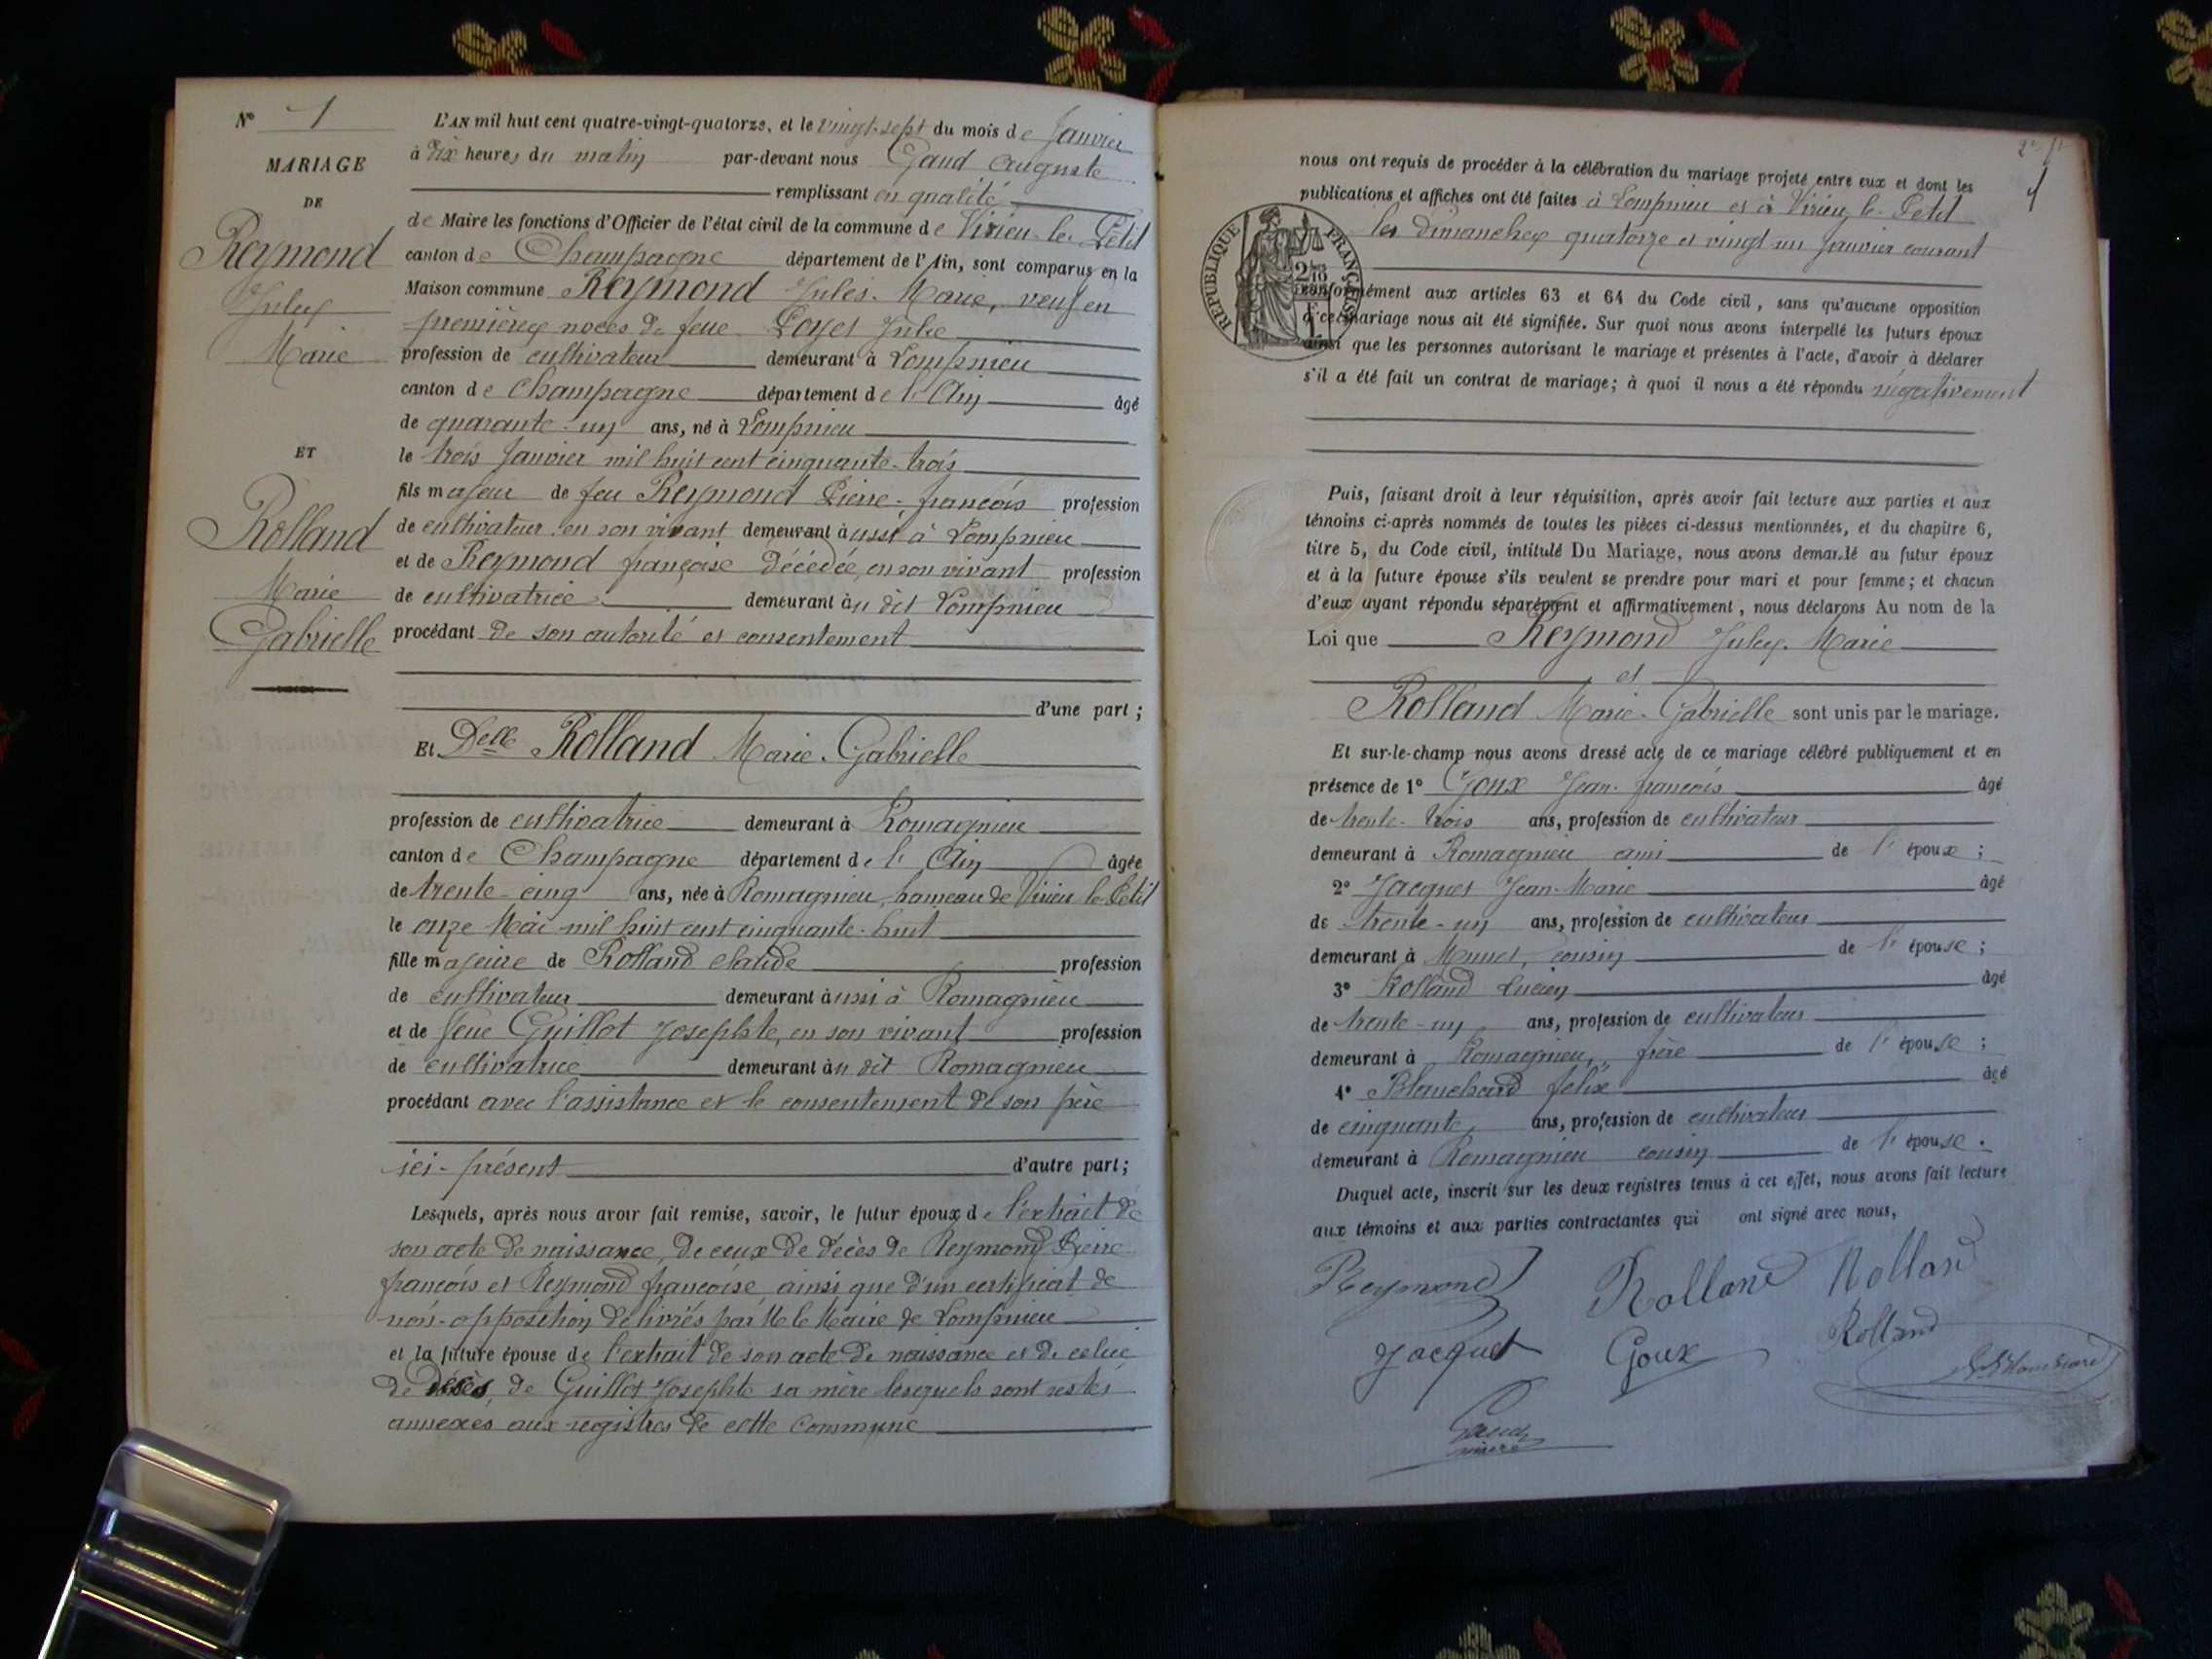 N° 1
MARIAGE
DE
Reymond
Jules
Marie
ET
Rolland
Marie
Gabrielle
L'AN mil huit cent quatre-vingt-quatorze, et le vingt-sept du mois de Janvier
à dix heures du matin par-devant nous Gaud Auguste
remplissant en qualité
de Maire les fonctions d'Officier de l'état civil de la commune de Virieu-le-Petit
canton de Champagne département de l'Ain, sont comparus en la
Maison commune Reymond Jules-Marie, veuf en
premières noces de feue Loyet Julie
profession de cultivateur demeurant à Lompnieu
canton de Champagne département de l'Ain âgé
de quarante-un ans, né à Lompnieu
le trois Janvier mil huit cent cinquante-trois
fils majeur de feu Reymond Pierre-françois profession
de cultivateur en son vivant demeurant aussi à Lompnieu
et de Reymond françoise décédée, en son vivant profession
de cultivatrice demeurant au dit Lompnieu
procédant de son autorité et consentement
d'une part;
Et Delle Rolland Marie-Gabrielle
profession de cultivatrice demeurant à Romagnieu
canton de Champagne département de l'Ain âgée
de trente-cinq ans, née à Romagnieu, hameau de Virieu le Petit
le onze Mai mil huit cent cinquante-huit
fille majeure de Rolland claude profession
de cultivateur demeurant aussi à Romagnieu
et de feue Guillot Josephte, en son vivant profession
de cultivatrice demeurant au dit Romagnieu
procédant avec l'assistance et le consentement de son père
ici-présent d'autre part;
Lesquels, après nous avoir fait remise, savoir, le futur époux de l'extrait de
son acte de naissance, de ceux de décès de Reymond Pierre
françois et Reymond françoise ainsi que d'un certificat de
non-opposition délivrés par M le Maire de Lompnieu
et la future épouse de l'extrait de son acte de naissance et de celui
de décès, de Guillot Josephte sa mère lesquels sont restés
annexés aux registres de cette commune
2e f
1
nous ont requis de procéder à la célébration du mariage projeté entre eux et dont les
publications et affiches ont été faites à Lompnieu et à Virieu-le-Petit
les dimanches quatorze et vingt-un Janvier courant
RÉPUBLIQUE FRANÇAISE
conformément aux articles 63 et 64 du Code civil, sans qu'aucune opposition
à ce mariage nous ait été signifiée. Sur quoi nous avons interpellé les futurs époux
ainsi que les personnes autorisant le mariage et présentes à l'acte, d'avoir à déclarer
s'il a été fait un contrat de mariage; à quoi il nous a été répondu négativement
Puis, faisant droit à leur réquisition, après avoir fait lecture aux parties et aux
témoins ci-après nommés de toutes les pièces ci-dessus mentionnées, et du chapitre 6,
titre 5, du Code civil, intitulé Du Mariage, nous avons demandé au futur époux
et à la future épouse s'ils veulent se prendre pour mari et pour femme; et chacun
d'eux ayant répondu séparément et affirmativement, nous déclarons Au nom de la
Loi que Reymond Jules-Marie
et
Rolland Marie-Gabrielle sont unis par le mariage.
Et sur-le-champ nous avons dressé acte de ce mariage célébré publiquement et en
présence de 1° Goux Jean-françois âgé
de trente-trois ans, profession de cultivateur
demeurant à Romagnieu ami de l'époux;
2° Jacquet Jean-Marie âgé
de trente-un ans, profession de cultivateur
demeurant à Munet, cousin de l'épouse;
3° Rolland Lucien âgé
de trente-un ans, profession de cultivateur
demeurant à Romagnieu, frère de l'épouse;
4° Blanchard felix âgé
de cinquante ans, profession de cultivateur
demeurant à Romagnieu cousin de l'épouse.
Duquel acte, inscrit sur les deux registres tenus à cet effet, nous avons fait lecture
aux témoins et aux parties contractantes qui ont signé avec nous,
Reymond Rolland Rolland
Jacquet Goux Rolland
Blanchard
Gaud
maire